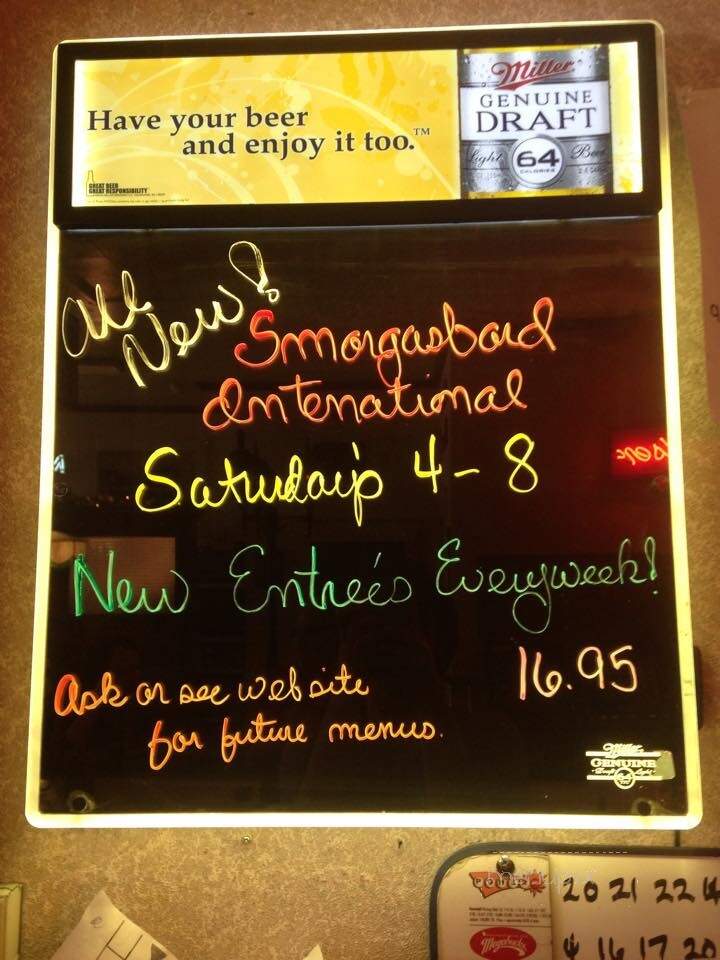 Have your beer
and enjoy it too.™
GREAT BEER
GREAT RESPONSIBILITY
Miller
GENUINE
DRAFT
Light 64 Beer
CALORIES
All
New!
Smorgasbord
International
Saturday's 4-8
New Entreés Everyweek!
16.95
Ask or see website
for future menus.
Miller
GENUINE
20 21 22
Megabucks
16 17 20